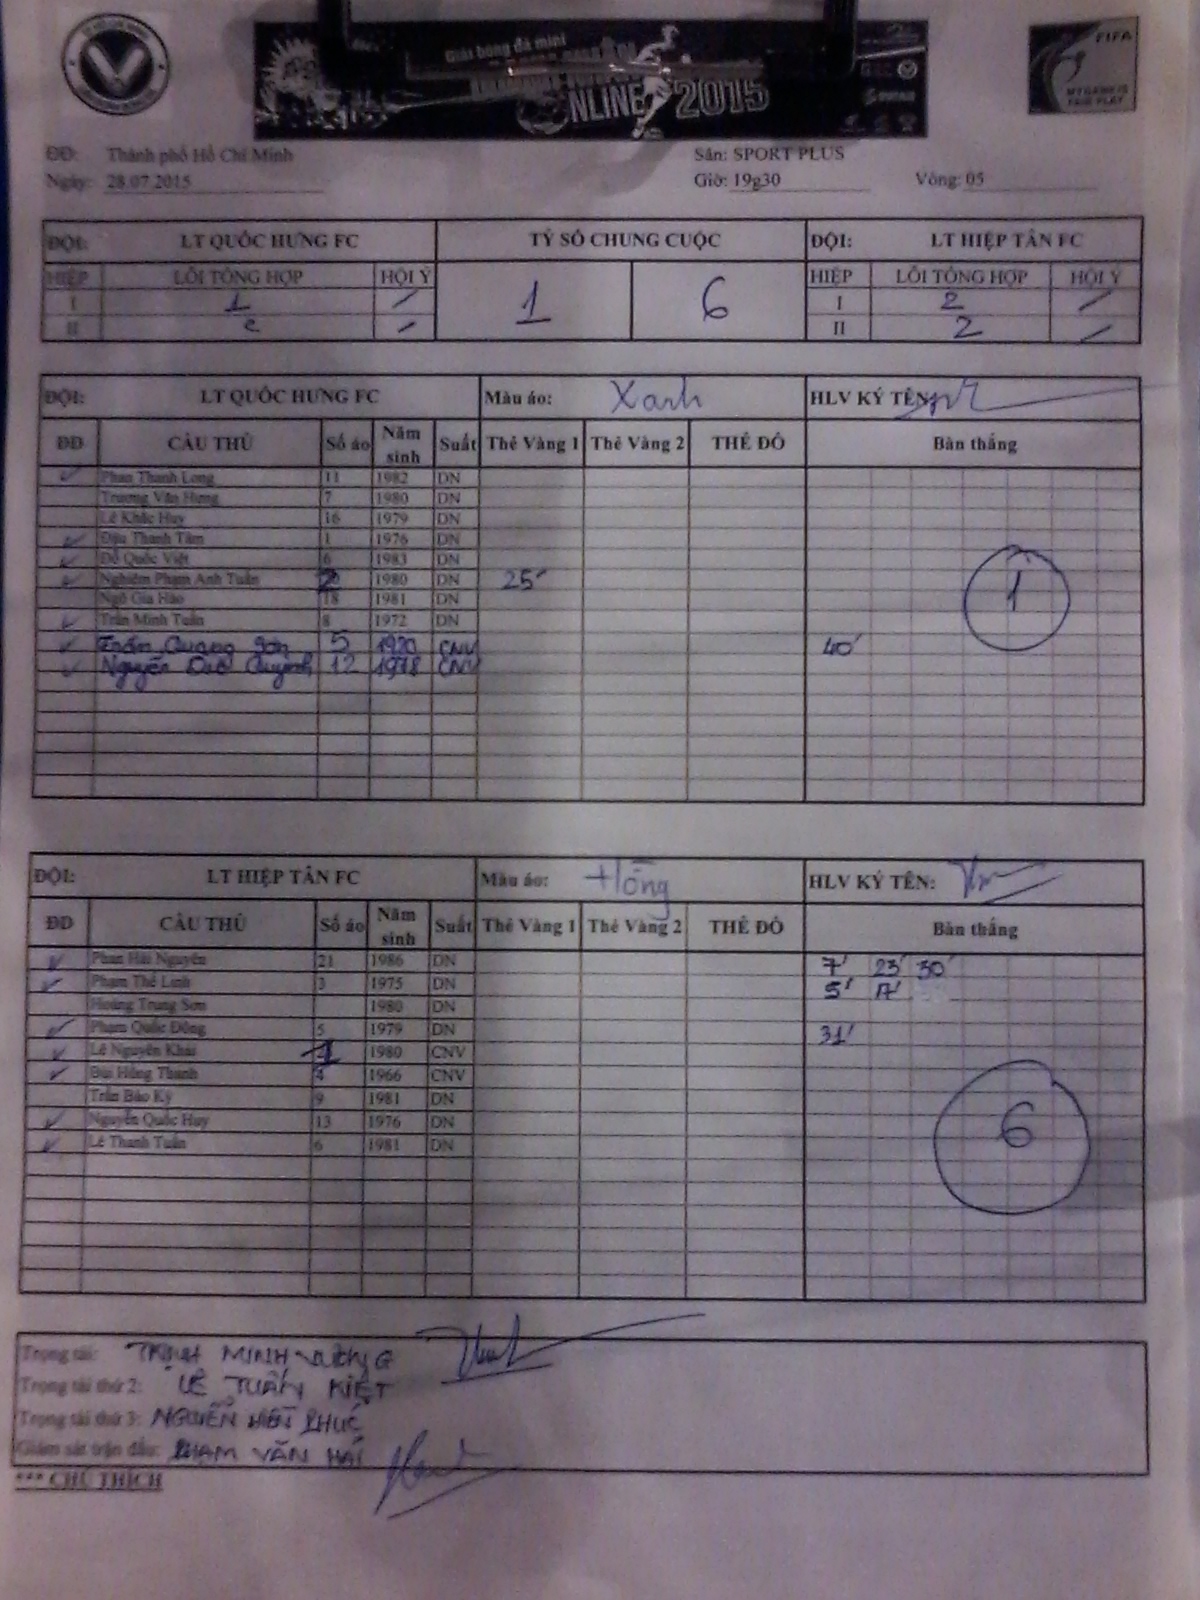 Giải bóng đá mini
NLINE 2015
FIFA
MY GAME IS
FAIR PLAY
ĐĐ: Thành phố Hồ Chí Minh Sân: SPORT PLUS
Ngày: 28.07.2015 Giờ: 19g30 Vòng: 05
ĐỘI: LT QUỐC HƯNG FC TỶ SỐ CHUNG CUỘC ĐỘI: LT HIỆP TÂN FC
HIỆP LỖI TỔNG HỢP HỘI Ý 1 6 HIỆP LỖI TỔNG HỢP HỘI Ý
I 1 / I 2 /
II / II 2 /
ĐỘI: LT QUỐC HƯNG FC Màu áo: Xanh HLV KÝ TÊN:
ĐD CẦU THỦ Số áo Năm sinh Suất Thẻ Vàng 1 Thẻ Vàng 2 THẺ ĐỎ Bàn thắng
Phan Thanh Long 11 1982 DN
Trương Văn Hưng 7 1980 DN
Lê Khắc Huy 16 1979 DN
Đậu Thanh Tâm 1 1976 DN
Đỗ Quốc Việt 6 1983 DN
Nghiêm Phạm Anh Tuấn 2 1980 DN 25' 1
Ngô Gia Hào 18 1981 DN
Trần Minh Tuấn 8 1972 DN
Trần Quang Sơn 5 CNV 40'
Nguyễn Quỳnh 12 1978 CNV
ĐỘI: LT HIỆP TÂN FC Màu áo: Hồng HLV KÝ TÊN:
ĐD CẦU THỦ Số áo Năm sinh Suất Thẻ Vàng 1 Thẻ Vàng 2 THẺ ĐỎ Bàn thắng
Phan Hải Nguyên 21 1986 DN 7' 23' 30'
Phạm Thế Linh 3 1975 DN 5' 17'
Hoàng Trung Sơn 1980 DN
Phạm Quốc Đông 5 1979 DN 31'
Lê Nguyên Khải 1 1980 CNV
Bùi Hồng Thanh 4 1966 CNV
Trần Bảo Kỳ 9 1981 DN
Nguyễn Quốc Huy 13 1976 DN 6
Lê Thanh Tuấn 6 1981 DN
Trọng tài: TRỊNH MINH VƯƠNG
Trọng tài thứ 2: LÊ TUẤN KIỆT
Trọng tài thứ 3: NGUYỄN HIỀN PHÚC
Giám sát trận đấu: PHẠM VĂN HẢI
*** CHÚ THÍCH